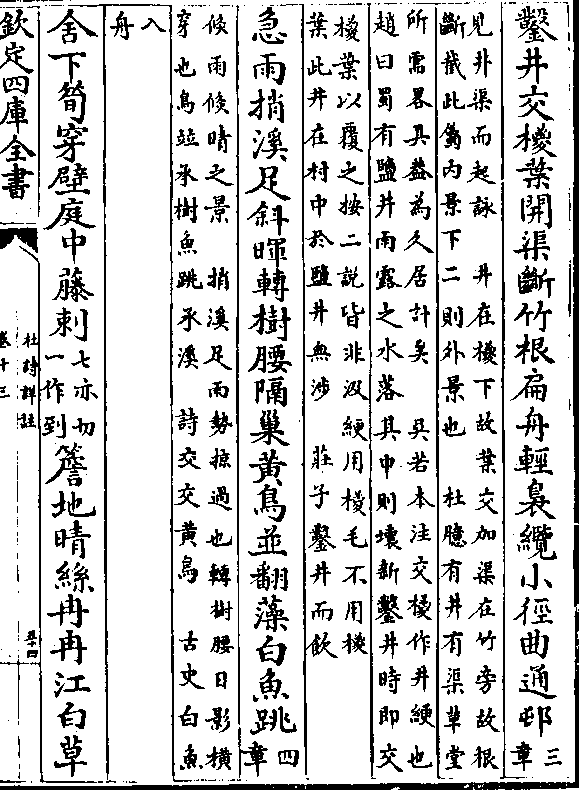 鑿井交椶葉開渠斷竹根扁舟輕褭纜小徑曲通邨三章
見井渠而起詠 井在椶下故葉交加渠在竹旁故根
斷截此舊内景下二則外景也 杜臆有井有渠草堂
所需畧具葢為久居計矣 吳若本注交椶作井綆也
趙曰蜀有鹽井雨露之水落其中則壞新鑿井時即交
椶葉以覆之按二説皆非汲綆用椶毛不用椶
葉此井在村中於鹽井無涉 莊子鑿井而飲
急雨捎溪足斜暉轉樹腰隔巢黃鳥並翻藻白魚跳四章
候雨候晴之景 捎溪足雨勢掠過也轉樹腰日影橫
穿也鳥竝承樹魚跳承溪 詩交交黃鳥 古史白魚
入
舟
舍下筍穿壁庭中藤刺七亦切一作到簷地晴絲冉冉江白草
欽定四庫全書
杜詩詳註
卷十三
五十四